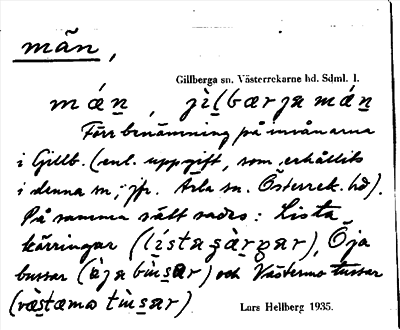 män,
Gillberga sn. Västerrekarne hd. Sdml. l.
mán, jìlbærja mán
Förr benämning på invånarna
i Gillb. (enl. uppgift, som erhållits
i denna sn; jfr. Ärla sn. Österrek. hd).
På samma sätt sades: Lista
kärringar (lísta çæ̀rgar), Öja
bussar (ö̀ja bùsar) och Västermo tussar
(væ̀stæmo tùsar)
Lars Hellberg 1935.